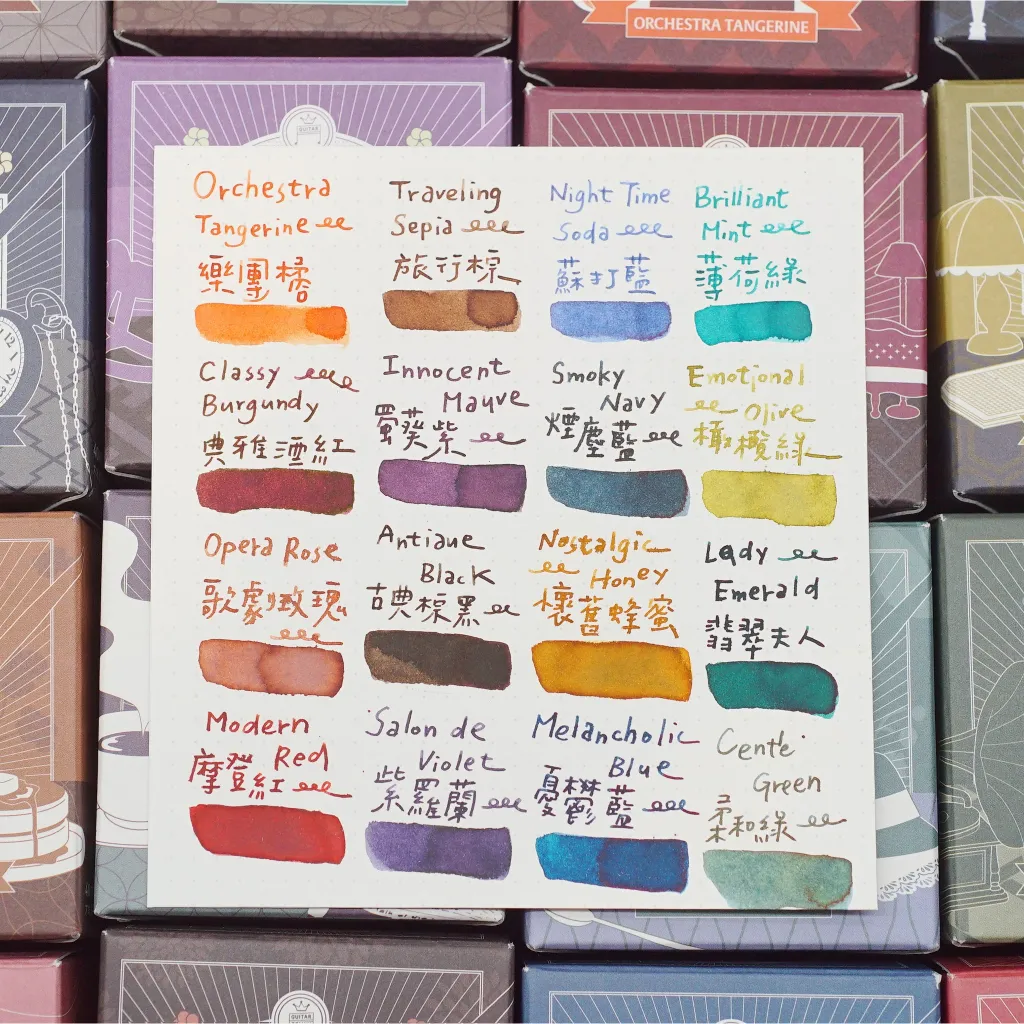 ORCHESTRA TANGERINE
GUITAR
Orchestra
Tangerine
樂團橘
Traveling
Sepia
旅行棕
Night Time
Soda
蘇打藍
Brilliant
Mint
薄荷綠
Classy
Burgundy
典雅酒紅
Innocent
Mauve
蜀葵紫
Smoky
Navy
煙塵藍
Emotional
Olive
橄欖綠
Opera Rose
歌劇玫瑰
Antique
Black
古典棕黑
Nostalgic
Honey
懷舊蜂蜜
Lady
Emerald
翡翠夫人
Modern
Red
摩登紅
Salon de
Violet
紫羅蘭
Melancholic
Blue
憂鬱藍
Gentle
Green
柔和綠
GUITAR